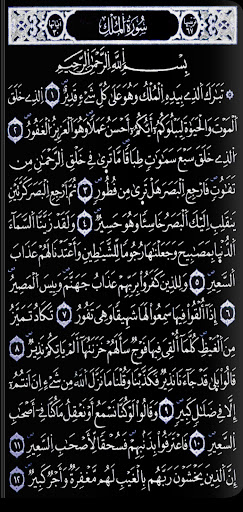 سُورَةُ المُلْكِ
بِسْمِ اللَّهِ الرَّحْمَٰنِ الرَّحِيمِ
تَبَارَكَ الَّذِي بِيَدِهِ الْمُلْكُ وَهُوَ عَلَىٰ كُلِّ شَيْءٍ قَدِيرٌ ١ الَّذِي خَلَقَ
الْمَوْتَ وَالْحَيَاةَ لِيَبْلُوَكُمْ أَيُّكُمْ أَحْسَنُ عَمَلًا وَهُوَ الْعَزِيزُ الْغَفُورُ ٢
الَّذِي خَلَقَ سَبْعَ سَمَاوَاتٍ طِبَاقًا مَّا تَرَىٰ فِي خَلْقِ الرَّحْمَٰنِ مِن
تَفَاوُتٍ فَارْجِعِ الْبَصَرَ هَلْ تَرَىٰ مِن فُطُورٍ ٣ ثُمَّ ارْجِعِ الْبَصَرَ كَرَّتَيْنِ
يَنقَلِبْ إِلَيْكَ الْبَصَرُ خَاسِئًا وَهُوَ حَسِيرٌ ٤ وَلَقَدْ زَيَّنَّا السَّمَاءَ
الدُّنْيَا بِمَصَابِيحَ وَجَعَلْنَاهَا رُجُومًا لِّلشَّيَاطِينِ وَأَعْتَدْنَا لَهُمْ عَذَابَ
السَّعِيرِ ٥ وَلِلَّذِينَ كَفَرُوا بِرَبِّهِمْ عَذَابُ جَهَنَّمَ وَبِئْسَ الْمَصِيرُ
٦ إِذَا أُلْقُوا فِيهَا سَمِعُوا لَهَا شَهِيقًا وَهِيَ تَفُورُ ٧ تَكَادُ تَمَيَّزُ
مِنَ الْغَيْظِ كُلَّمَا أُلْقِيَ فِيهَا فَوْجٌ سَأَلَهُمْ خَزَنَتُهَا أَلَمْ يَأْتِكُمْ نَذِيرٌ ٨
قَالُوا بَلَىٰ قَدْ جَاءَنَا نَذِيرٌ فَكَذَّبْنَا وَقُلْنَا مَا نَزَّلَ اللَّهُ مِن شَيْءٍ إِنْ أَنتُمْ
إِلَّا فِي ضَلَالٍ كَبِيرٍ ٩ وَقَالُوا لَوْ كُنَّا نَسْمَعُ أَوْ نَعْقِلُ مَا كُنَّا فِي أَصْحَابِ
السَّعِيرِ ١٠ فَاعْتَرَفُوا بِذَنبِهِمْ فَسُحْقًا لِّأَصْحَابِ السَّعِيرِ ١١
إِنَّ الَّذِينَ يَخْشَوْنَ رَبَّهُم بِالْغَيْبِ لَهُم مَّغْفِرَةٌ وَأَجْرٌ كَبِيرٌ ١٢